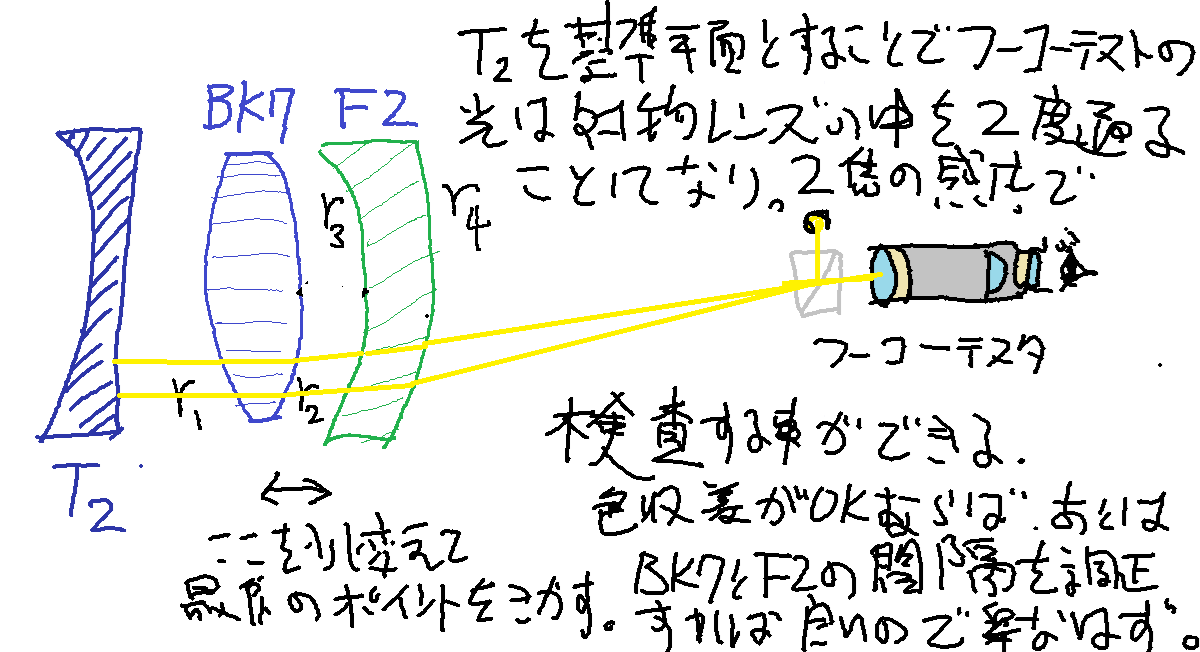 T2を基準平面とすることでフーコーテストの
光は対物レンズの中を2度通る
ことになり。2倍の感度で
BK7 F2
r3 r4
フーコーテスタ
r1 r2
T2
検査する事ができる.
色収差がOKならば.あとは
BK7とF2の間隔を調正
すれば良いので楽なはず。
ここを少し変えて
最良のポイントをさがす。